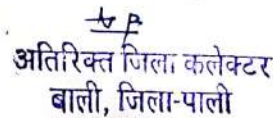 अतिरिक्त जिला कलेक्टर
बाली, जिला-पाली